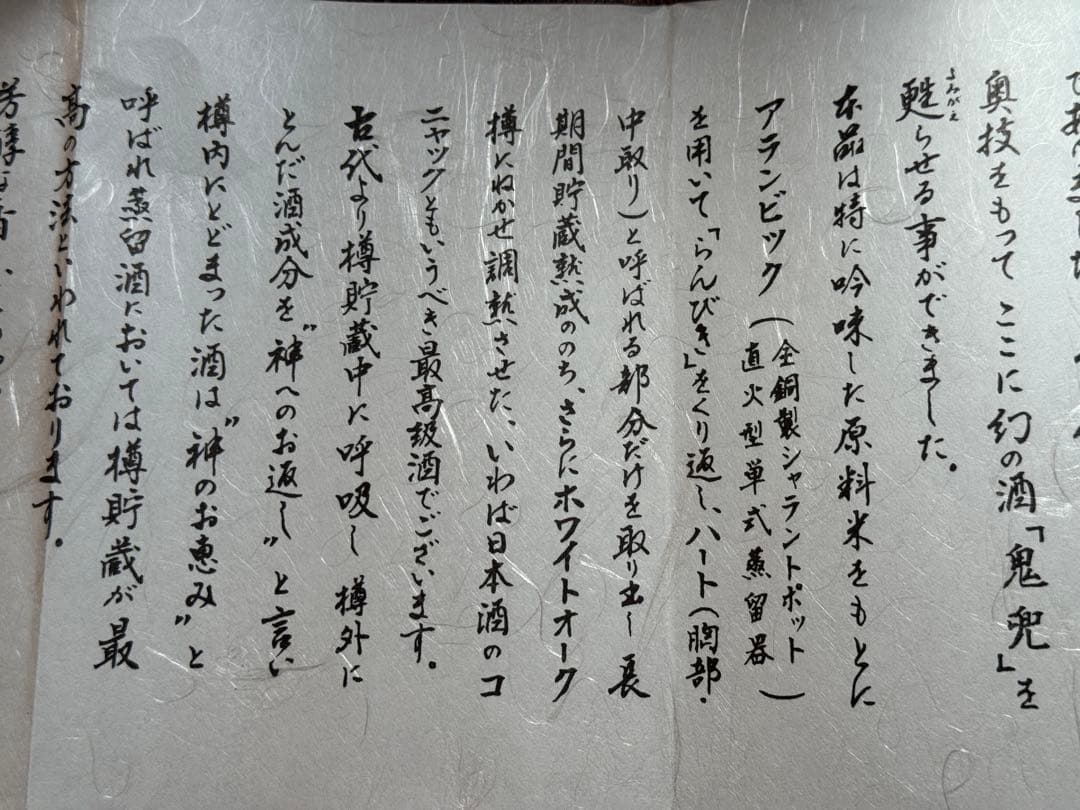 奥技をもってここに幻の酒「鬼兜」を
甦らせる事ができました。
よみがえ
本品は特に吟味した原料米をもとに
アランビック(全銅製シャラントポット直火型単式蒸留器)
を用いて「らんびき」をくり返し、ハート(胸部・
中取り)と呼ばれる部分だけを取り出し長
期間貯蔵熟成ののち、さらにホワイトオーク
樽にねかせ調熟させた、いわば日本酒のコ
ニャックともいうべき最高級酒でございます。
古代より樽貯蔵中に呼吸し樽外に
とんだ酒成分を〝神へのお返し〟と言い
樽内にとどまった酒は〝神のお恵み〟と
呼ばれ蒸留酒においては樽貯蔵が最
高の方法といわれております。